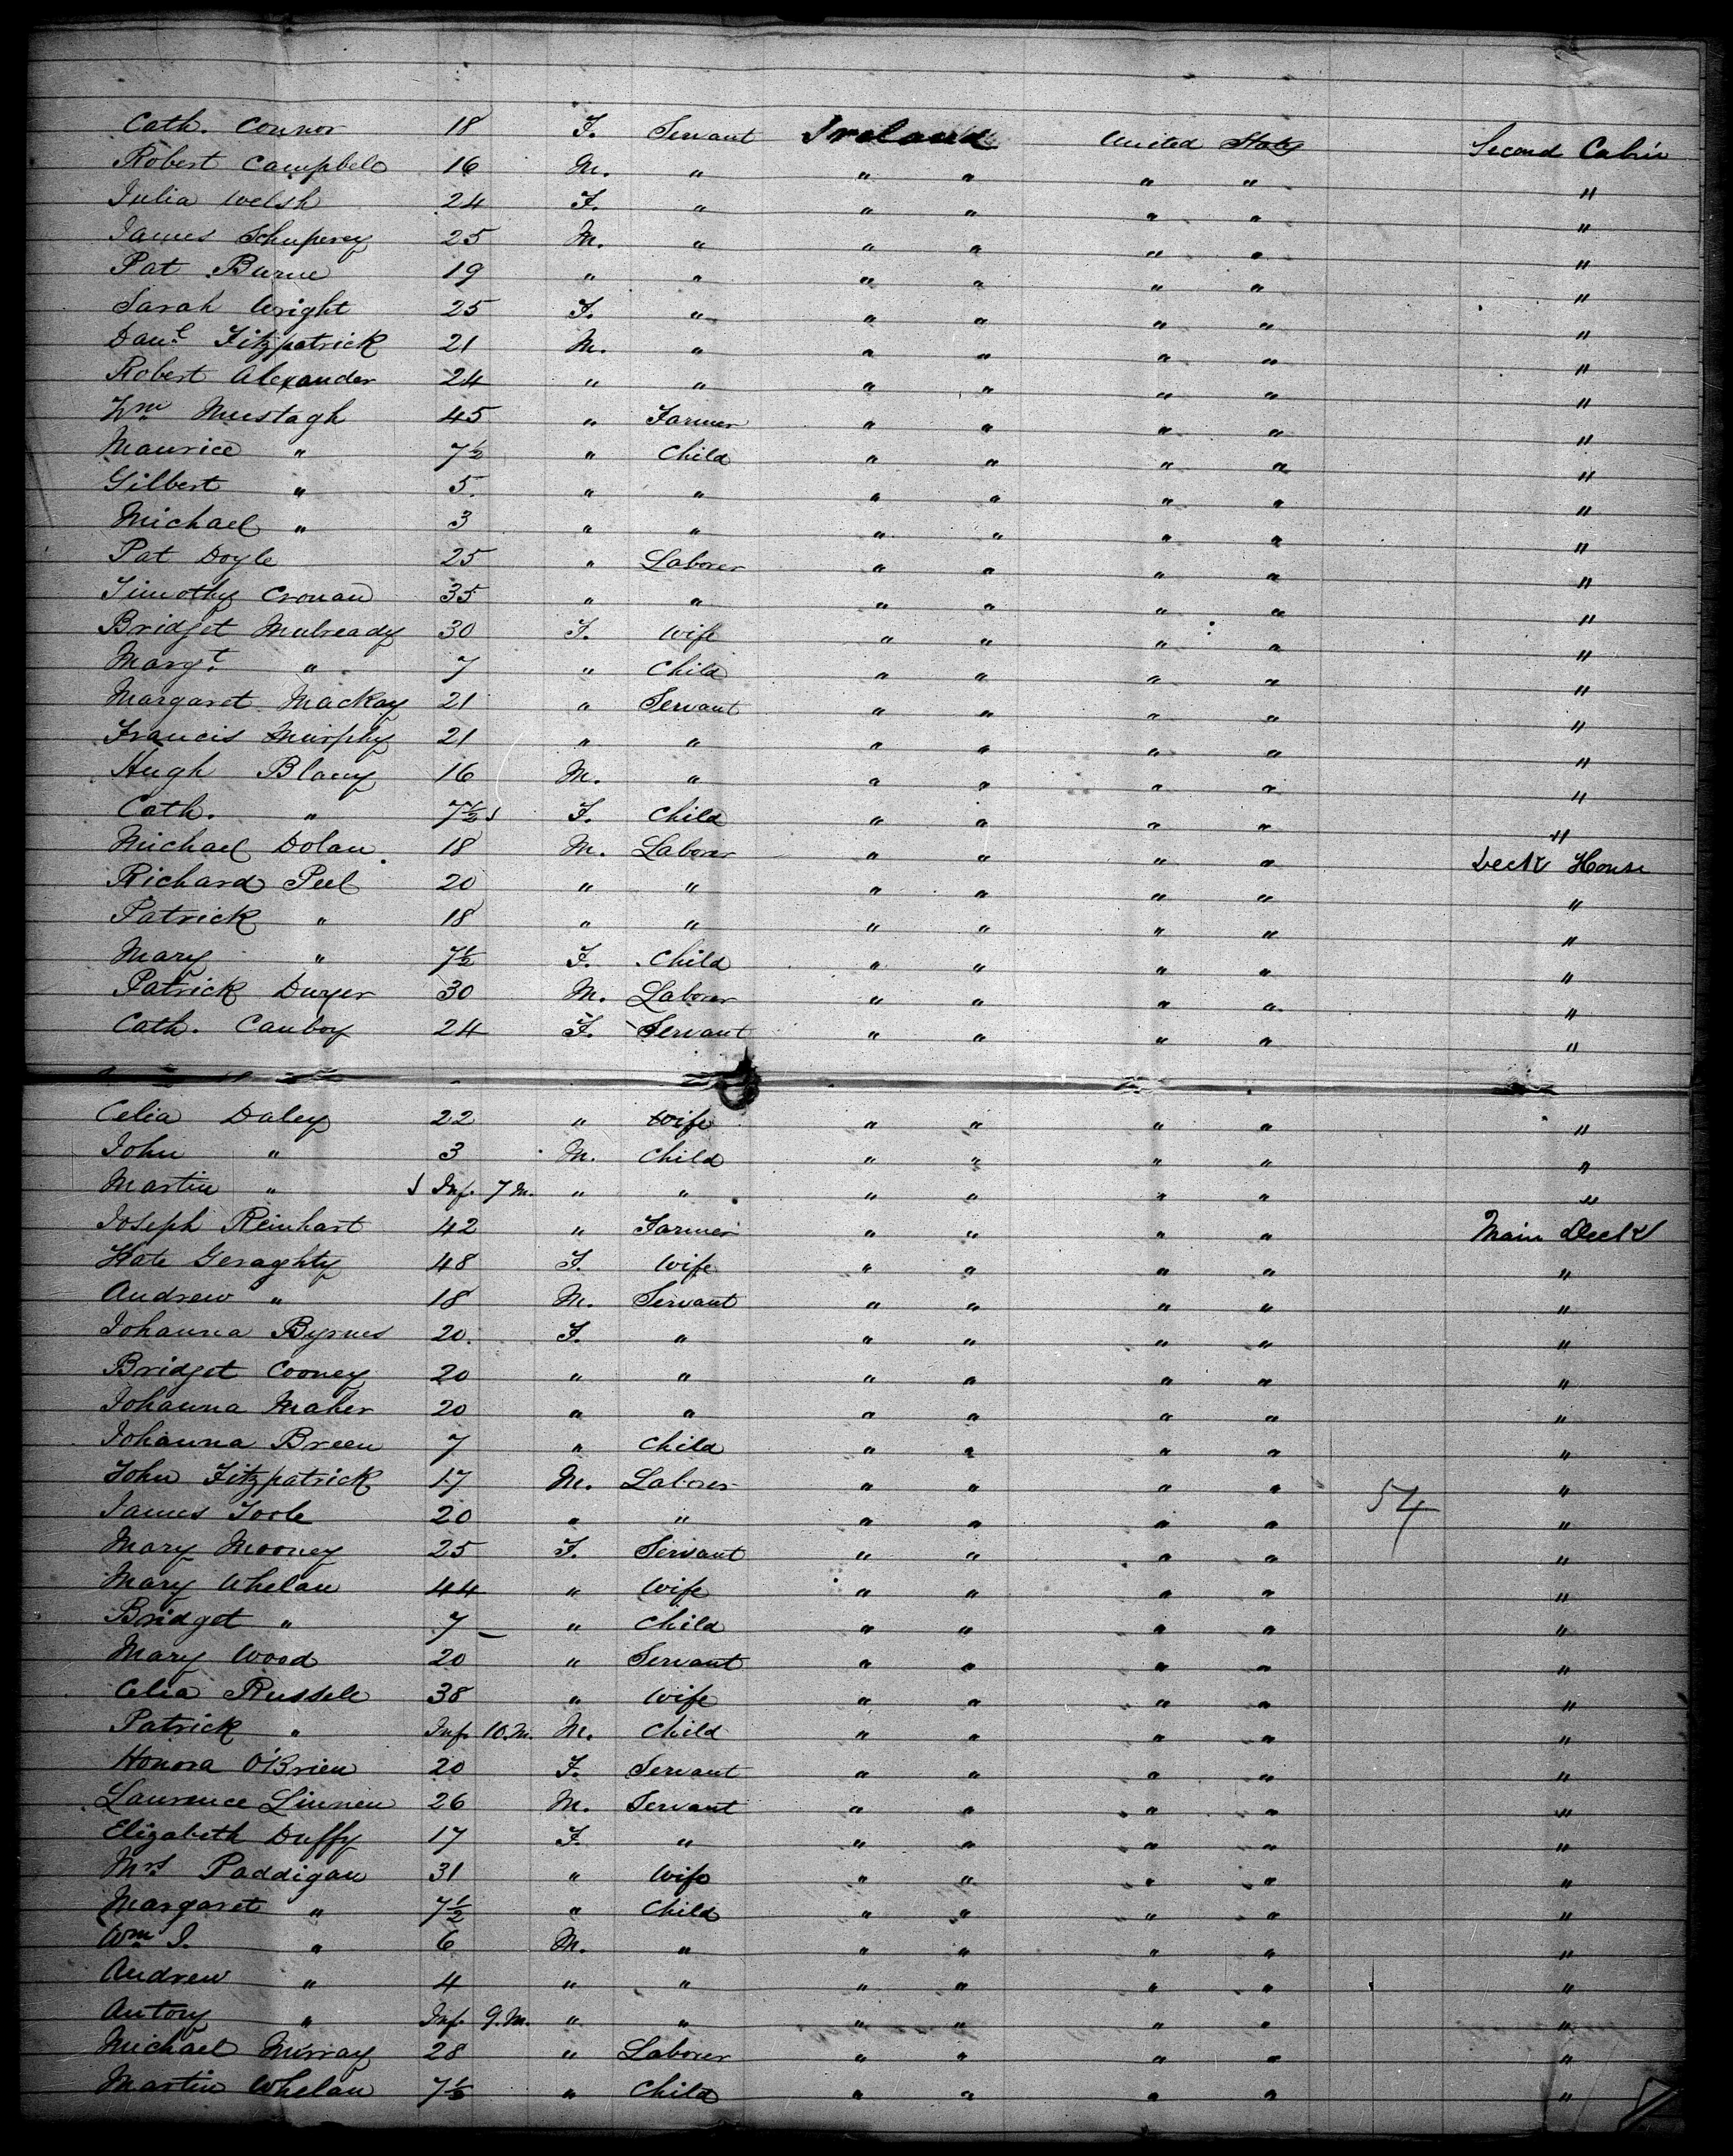 Cath. Connor 18 F. Servant Ireland United States Second Cabin
Robert Campbell 16 M. " " " " " "
Julia Welsh 24 F. " " " " " "
James 25 M. " " " " " "
Pat Burne 19 " " " " " " "
Sarah Wright 25 F. " " " " " "
Danl. Fitzpatrick 21 M. " " " " " "
Robert Alexander 24 " " " " " " "
Wm Mustagh 45 " Farmer " " " " "
Maurice " 7½ " Child " " " " "
Gilbert " 5. " " " " " " "
Michael " 3 " " " " " " "
Pat Doyle 25 " Laborer " " " " "
Timothy Cronan 35 " " " " " " "
Bridget Mulready 30 F. Wife " " " " "
Margt. " 7 " Child " " " " "
Margaret Mackay 21 " Servant " " " " "
Francis Murphy 21 " " " " " " "
Hugh Blany 16 M. " " " " " "
Cath. " 7½ F. Child " " " " "
Michael Dolan 18 M. Laborer " " " " Deck House
Richard Peel 20 " " " " " " "
Patrick " 18 " " " " " " "
Mary " 7½ F. Child " " " " "
Patrick Dwyer 30 M. Laborer " " " " "
Cath. Canboy 24 F. Servant " " " " "
Celia Daley 22 " Wife " " " " "
John " 3 M. Child " " " " "
Martin " Inf. 7 M. " " " " " " "
Joseph Reinhart 42 " Farmer " " " " Main Deck
Kate Geraghty 48 F. Wife " " " " "
Andrew " 18 M. Servant " " " " "
Johanna Byrnes 20. F. " " " " " "
Bridget Cooney 20 " " " " " " "
Johanna Maher 20 " " " " " " "
Johanna Breen 7 " Child " " " " "
John Fitzpatrick 17 M. Laborer " " " " "
James Toole 20 " " " " " " 54 "
Mary Mooney 25 F. Servant " " " " "
Mary Whelan 44 " Wife " " " " "
Bridget " 7 " Child " " " " "
Mary Wood 20 " Servant " " " " "
Celia Russell 38 " Wife " " " " "
Patrick " Inf. 10. M. M. Child " " " " "
Honora O'Brien 20 F. Servant " " " " "
Laurence Linnen 26 M. Servant " " " " "
Elizabeth Duffy 17 F. " " " " " "
Mrs Paddigan 31 " Wife " " " " "
Margaret " 7½ " Child " " " " "
Wm J. " 6 M. " " " " " "
Andrew " 4 " " " " " " "
Antony " Inf. 9. M. " " " " " " "
Michael Murray 28 " Laborer " " " " "
Martin Whelan 7½ " Child " " " " "